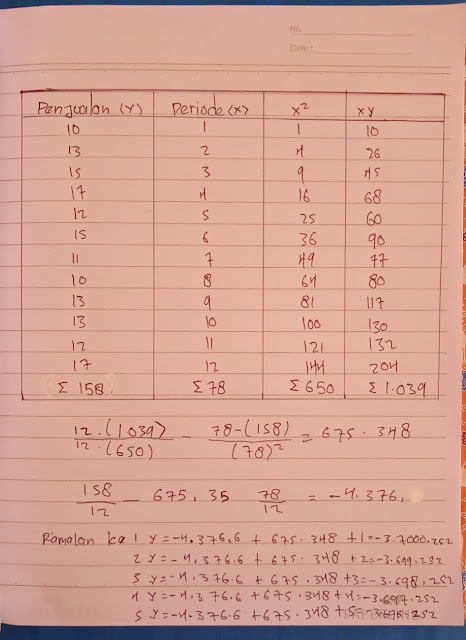 No.
Date :
Penjualan (Y) Periode (X) x² xy
10 1 1 10
13 2 4 26
15 3 9 45
17 4 16 68
12 5 25 60
15 6 36 90
11 7 49 77
10 8 64 80
13 9 81 117
13 10 100 130
12 11 121 132
17 12 144 204
Σ 158 Σ 78 Σ 650 Σ 1.039
12.(1039) / 12.(650) - 78-(158) / (78)² = 675.348
158 / 12 - 675,35 78 / 12 = -4.376,
Ramalan ke 1 Y = -4.376,6 + 675.348 + 1 = -3.7000.252
2 Y = -4.376.6 + 675.348 + 2 = -3.699.252
3 Y = -4.376.6 + 675.348 + 3 = -3.698.252
4 Y = -4.376.6 + 675.348 + 4 = -3.697.252
5 Y = -4.376.6 + 675.348 + 5